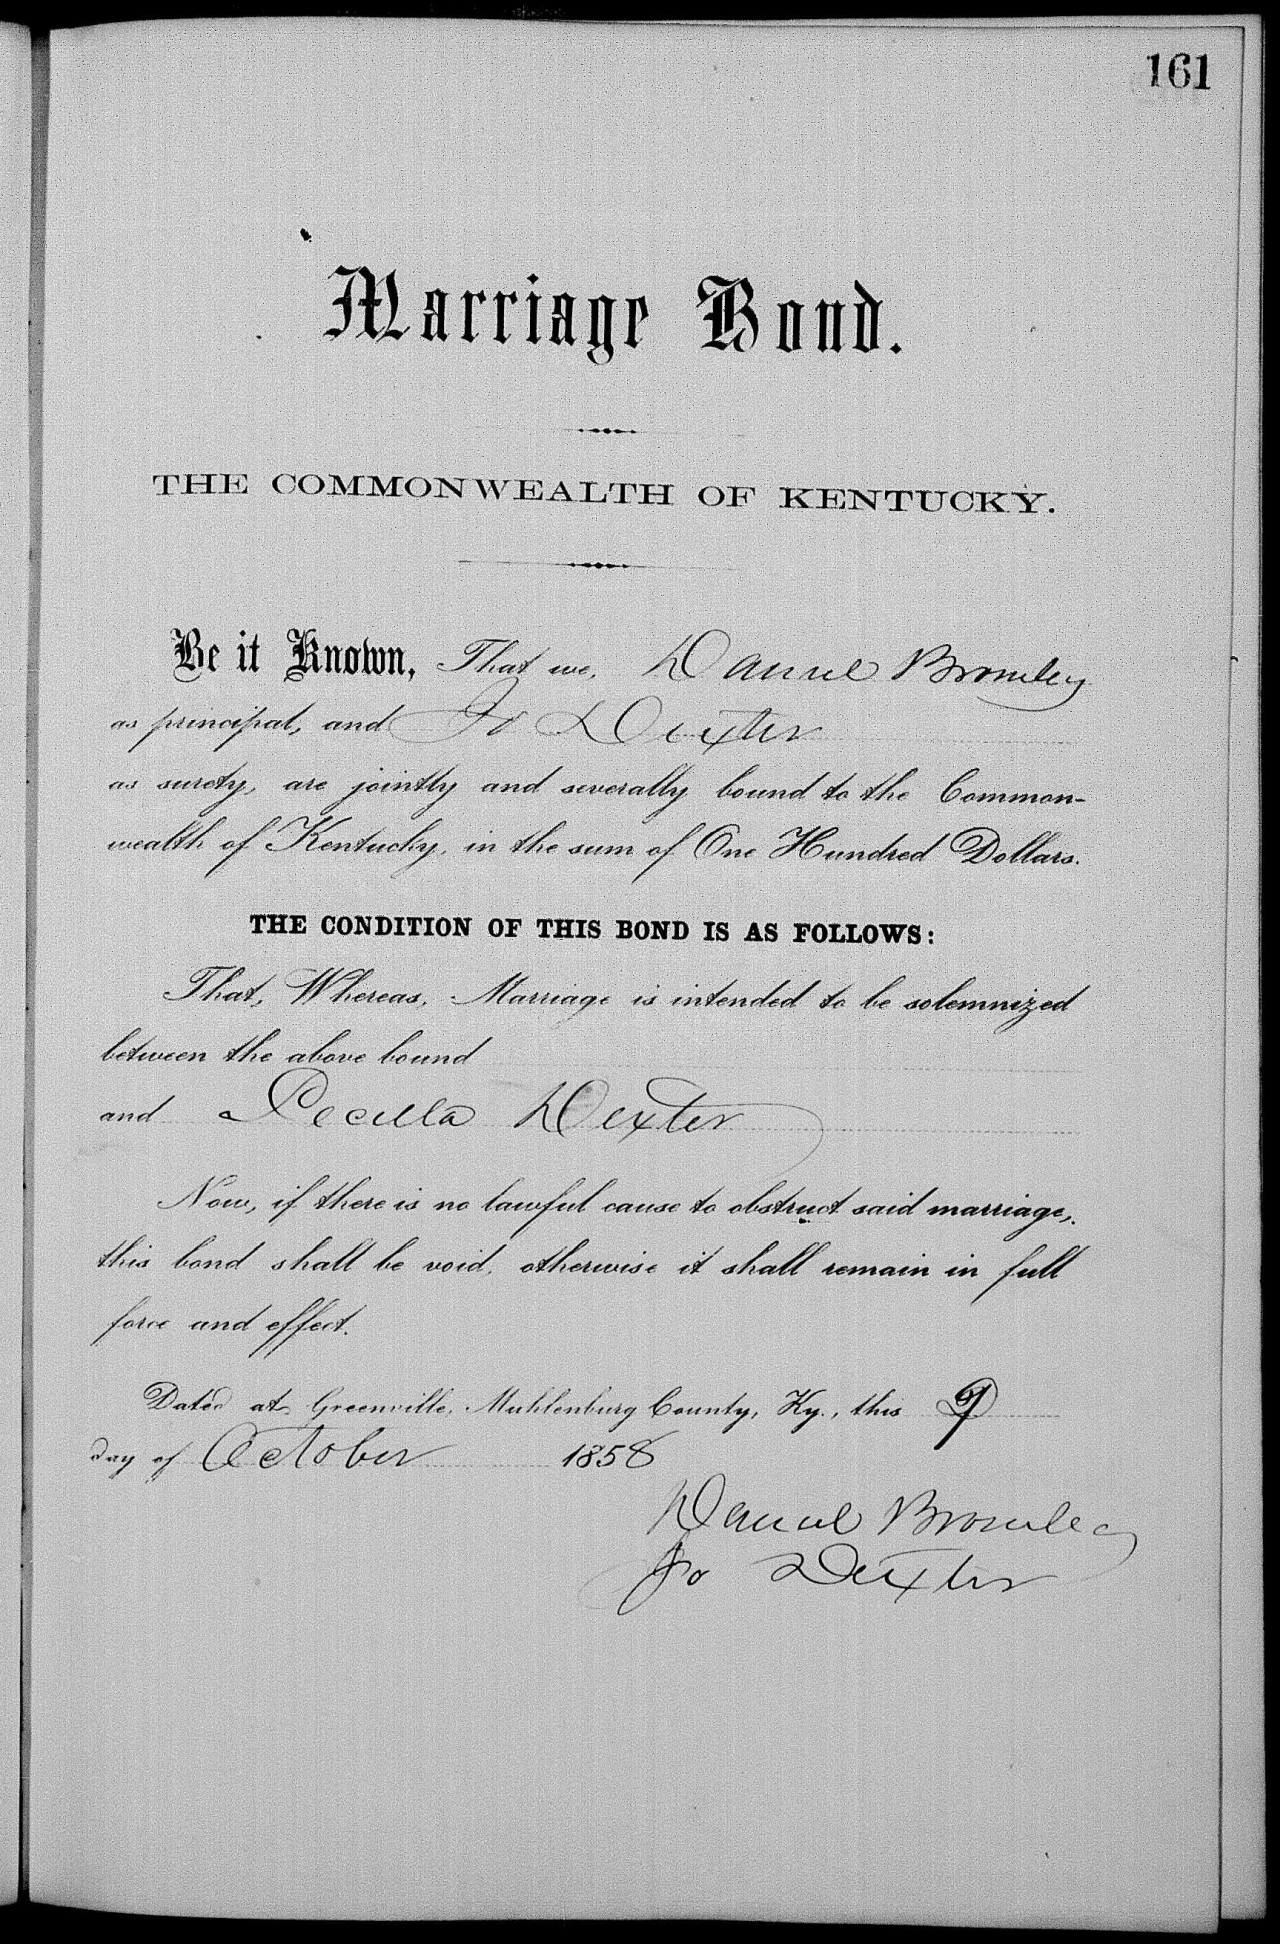 161
Marriage Bond.
THE COMMONWEALTH OF KENTUCKY.
Be it Known, That we, Daniel Bromley
as principal, and Jo Dexter
as surety, are jointly and severally bound to the Common-
wealth of Kentucky, in the sum of One Hundred Dollars.
THE CONDITION OF THIS BOND IS AS FOLLOWS:
That, Whereas, Marriage is intended to be solemnized
between the above bound
and Cecilla Dexter
Now, if there is no lawful cause to obstruct said marriage,
this bond shall be void, otherwise it shall remain in full
force and effect.
Dated at Greenville, Muhlenburg County, Ky., this 9
day of October 1858
Daniel Bromley
Jo Dexter